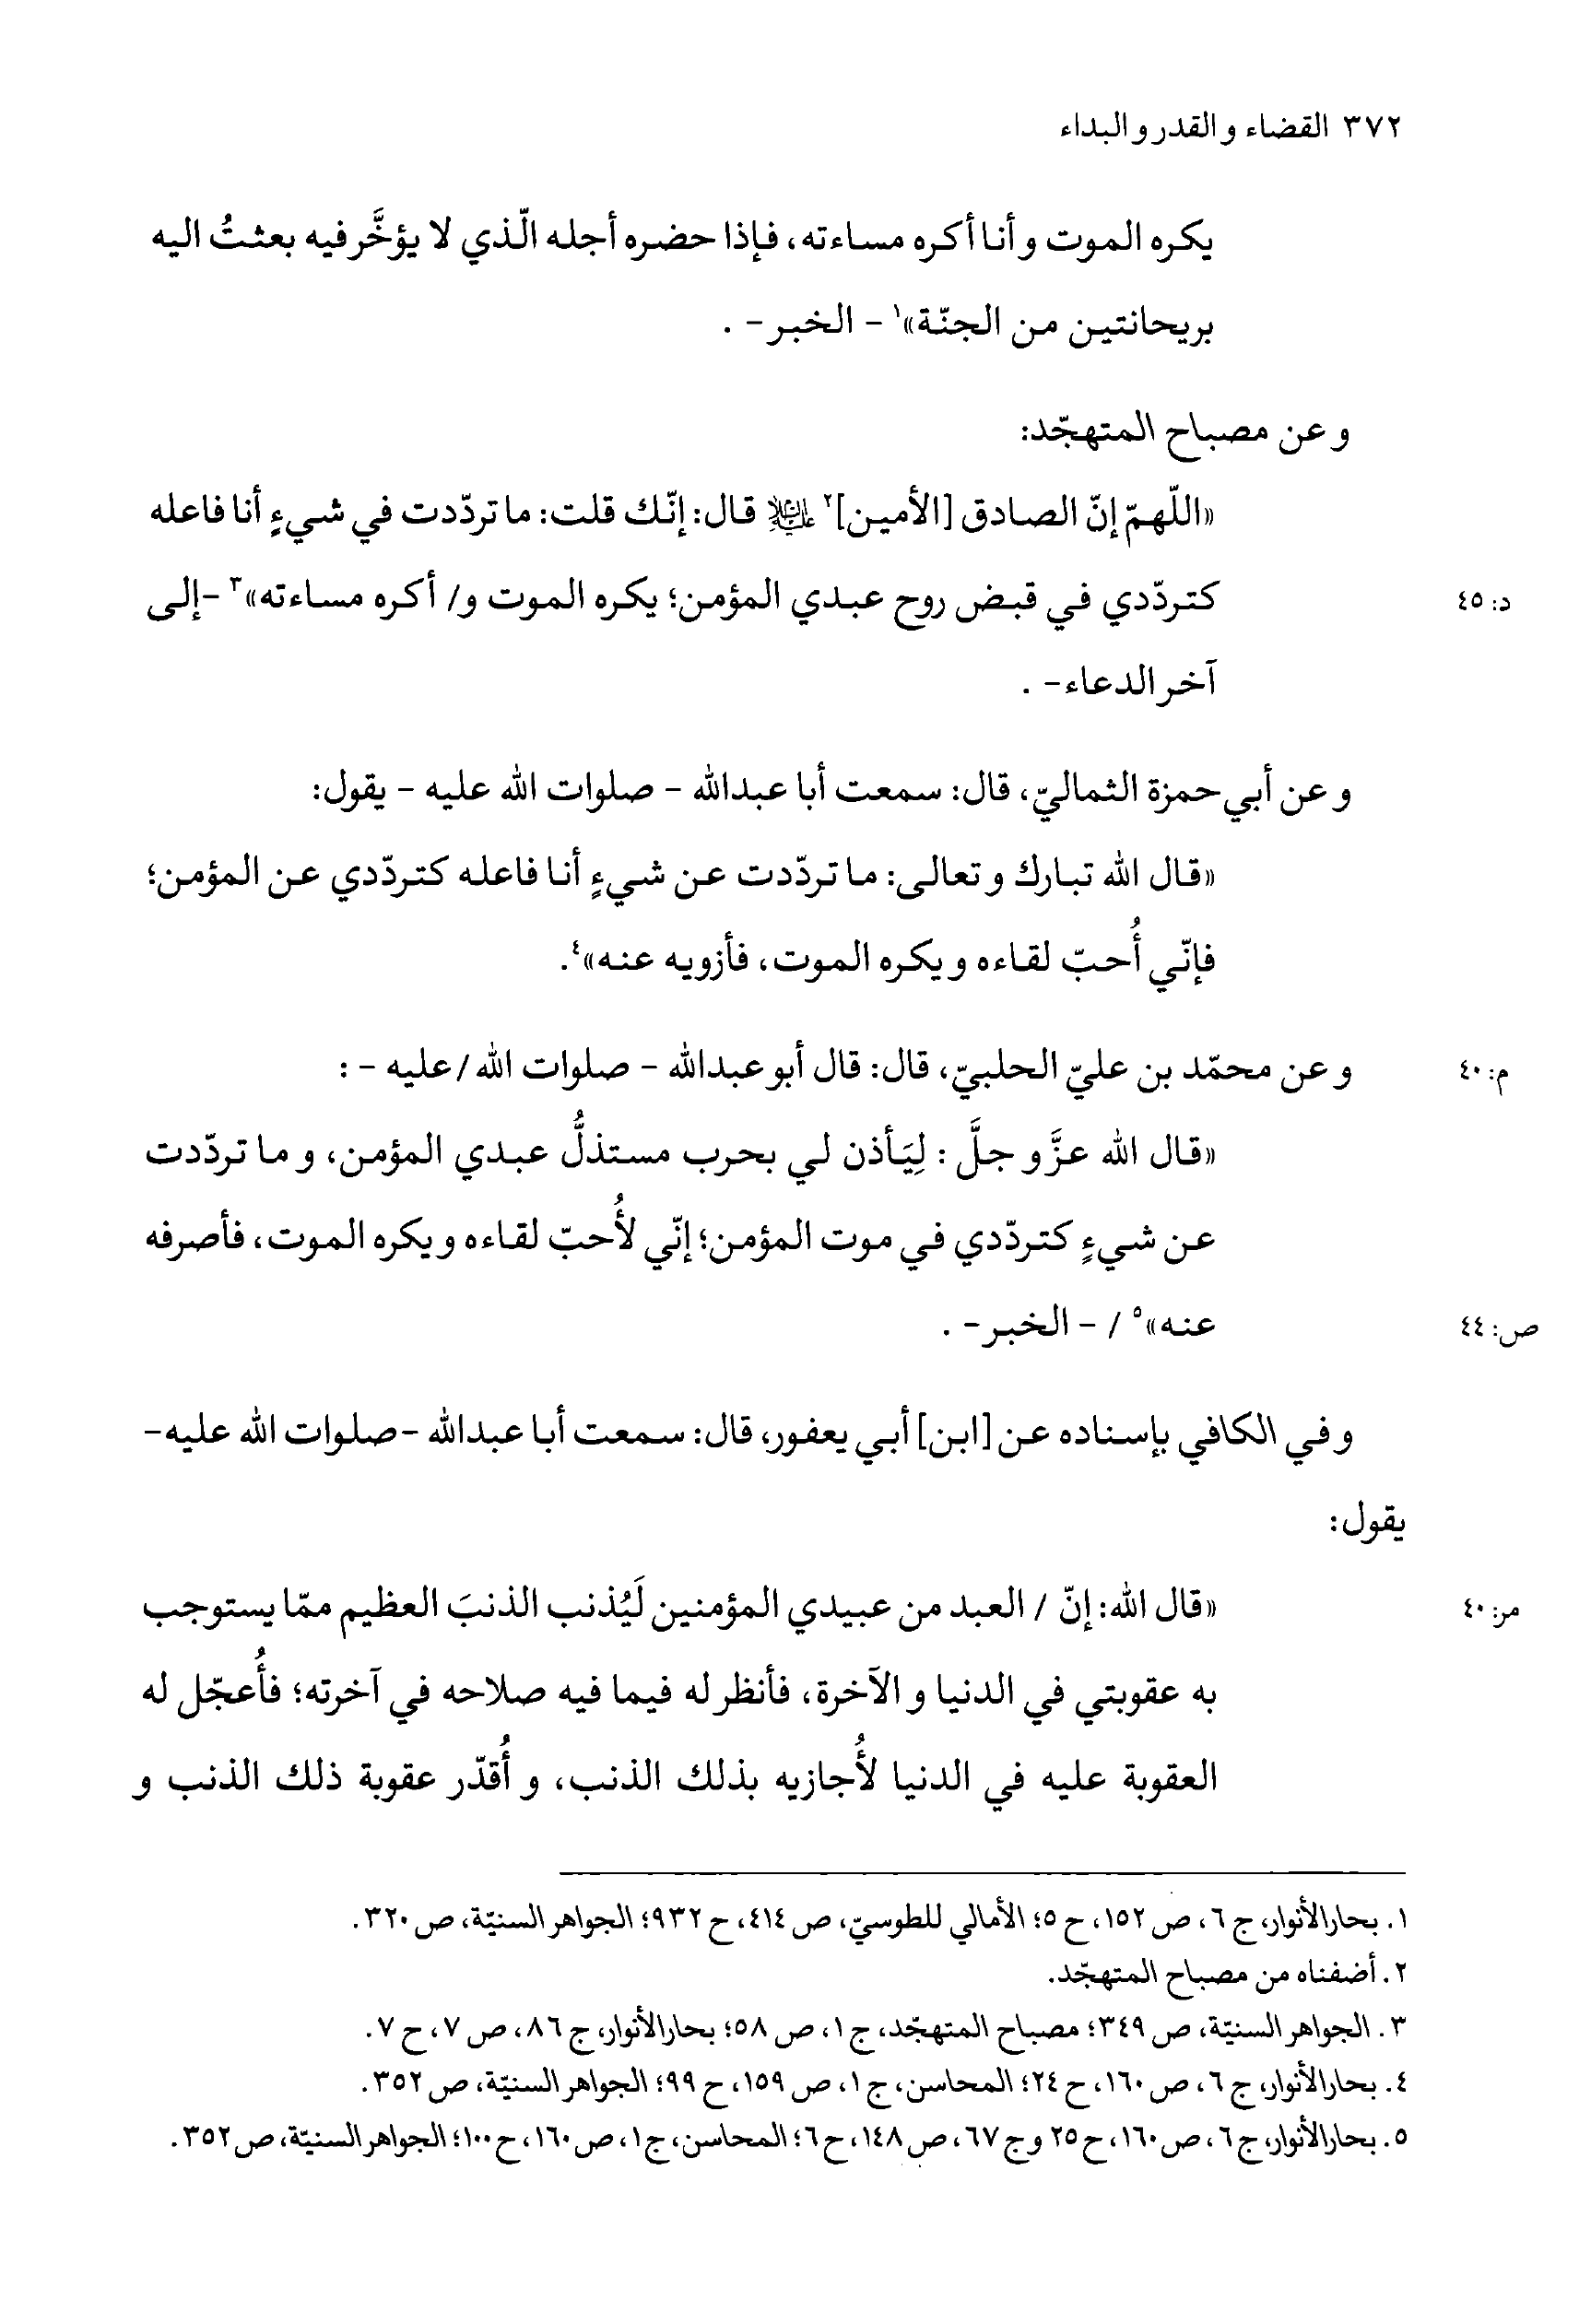 ٣٧٢ القضاء و القدر و البداء
يكره الموت و أنا أكره مساءته، فإذا حضره أجله الّذي لا يؤخَّر فيه بعثتُ اليه
بريحانتين من الجنّة»١ - الخبر- .
و عن مصباح المتهجّد:
«اللّهمّ إنّ الصادق [الأمين]٢ عليه‌السلام قال: إنّك قلت: ما تردّدت في شيءٍ أنا فاعله
كتردّدي في قبض روح عبدي المؤمن؛ يكره الموت و/ أكره مساءته»٣ -إلى
د: ٤٥
آخر الدعاء- .
و عن أبي حمزة الثماليّ، قال: سمعت أبا عبدالله - صلوات الله عليه - يقول:
«قال الله تبارك و تعالى: ما تردّدت عن شيءٍ أنا فاعله كتردّدي عن المؤمن؛
فإنّي أُحبّ لقاءه و يكره الموت، فأزويه عنه»٤.
و عن محمّد بن عليّ الحلبيّ، قال: قال أبو عبدالله - صلوات الله / عليه - :
م: ٤٠
«قال الله عزَّ و جلَّ : لِيَأذن لي بحرب مستذلُّ عبدي المؤمن، و ما تردّدت
عن شيءٍ كتردّدي في موت المؤمن؛ إنّي لأُحبّ لقاءه و يكره الموت، فأصرفه
عنه»٥ / - الخبر- .
ص: ٤٤
و في الكافي بإسناده عن [ابن] أبي يعفور، قال: سمعت أبا عبدالله -صلوات الله عليه-
يقول:
«قال الله: إنّ / العبد من عبيدي المؤمنين لَيُذنب الذنبَ العظيم ممّا يستوجب
مر: ٤٠
به عقوبتي في الدنيا و الآخرة، فأنظر له فيما فيه صلاحه في آخرته؛ فأُعجّل له
العقوبة عليه في الدنيا لأُجازيه بذلك الذنب، و أُقدّر عقوبة ذلك الذنب و
١. بحار الأنوار، ج ٦، ص ١٥٢، ح ٥؛ الأمالي للطوسيّ، ص ٤١٤، ح ٩٣٢؛ الجواهر السنيّة، ص ٣٢٠.
٢. أضفناه من مصباح المتهجّد.
٣. الجواهر السنيّة، ص ٣٤٩؛ مصباح المتهجّد، ج ١، ص ٥٨؛ بحار الأنوار، ج ٨٦، ص ٧، ح ٧.
٤. بحار الأنوار، ج ٦، ص ١٦٠، ح ٢٤؛ المحاسن، ج ١، ص ١٥٩، ح ٩٩؛ الجواهر السنيّة، ص ٣٥٢.
٥. بحار الأنوار، ج ٦، ص ١٦٠، ح ٢٥ و ج ٦٧، ص ١٤٨، ح ٦؛ المحاسن، ج ١، ص ١٦٠، ح ١٠٠؛ الجواهر السنيّة، ص ٣٥٢.